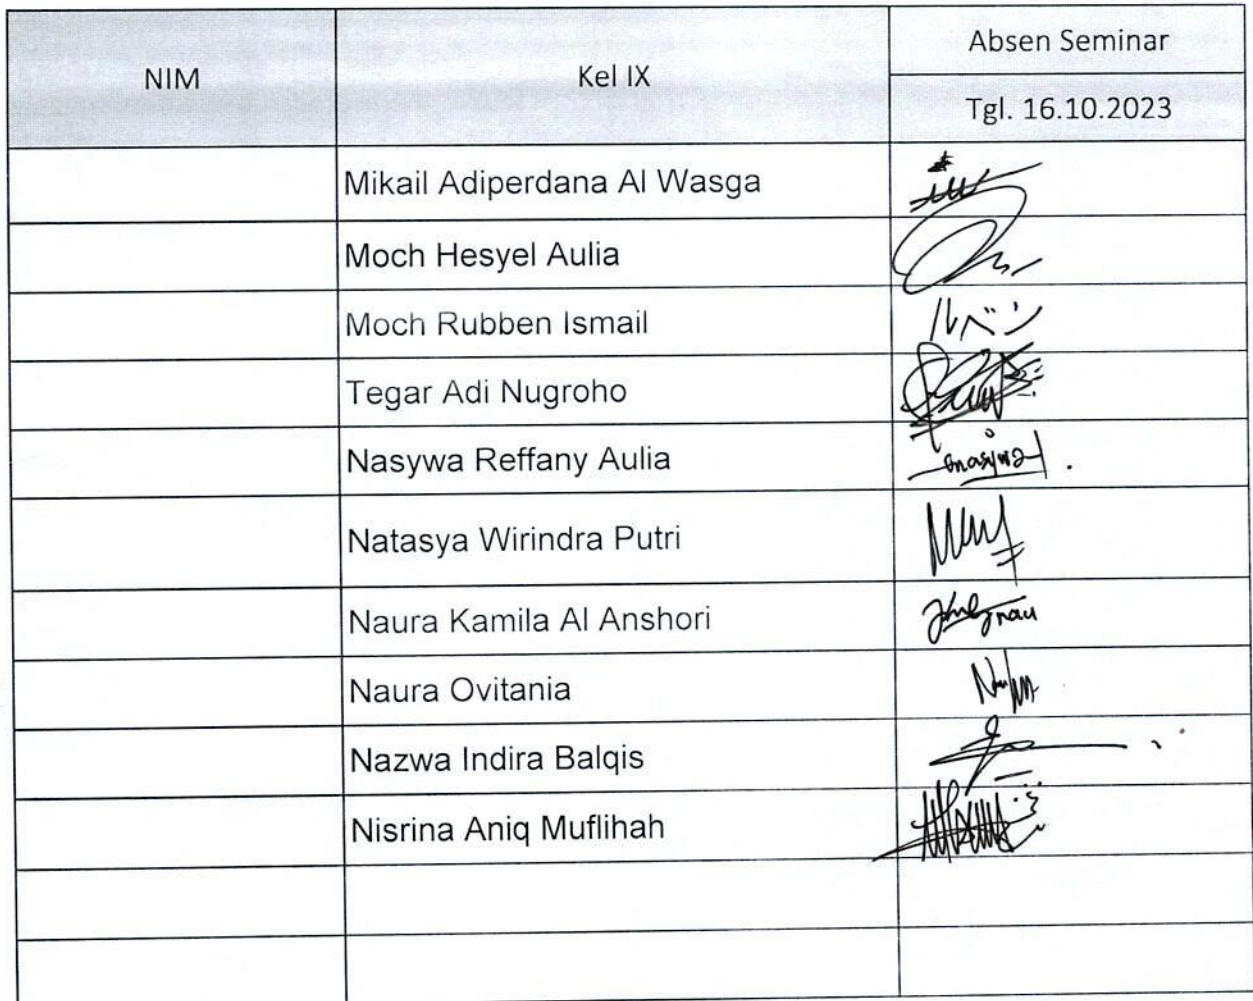 NIM
Kel IX
Absen Seminar
Tgl. 16.10.2023
Mikail Adiperdana Al Wasga
Moch Hesyel Aulia
Moch Rubben Ismail
ルベン
Tegar Adi Nugroho
Nasywa Reffany Aulia
Natasya Wirindra Putri
Naura Kamila Al Anshori
Naura Ovitania
Nazwa Indira Balqis
Nisrina Aniq Muflihah